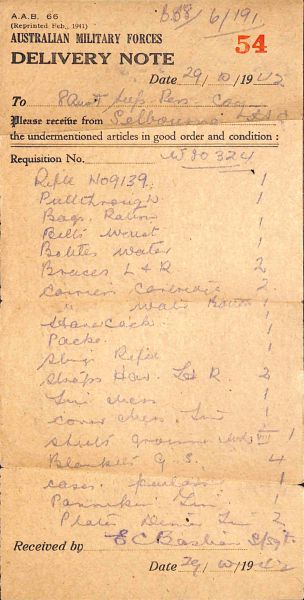 A.A.B. 66
(Reprinted Feb., 1941)
6/191.
AUSTRALIAN MILITARY FORCES
54
DELIVERY NOTE
Date 29/10/1942
To
Please receive from Selbourne
the undermentioned articles in good order and condition :
Requisition No. W 30324
Rifle No 9139 1
Pullthrough 1
Bags Ration 1
Belts Waist 1
Bottles Water 1
Braces L & R 2
Carriers Cartridge 2
" Water Bottle 1
Haversack 1
Packs 1
Sling Rifle 1
Straps Hav. L & R 2
Tin Mess 1
Cover Mess Tin 1
Sheets Ground 1
Blankets G S. 4
Cases 1
Pannikin Tin 1
Plates Dinner Tin 2
Received by E C Bastian S/Sgt
Date 29/10/1942